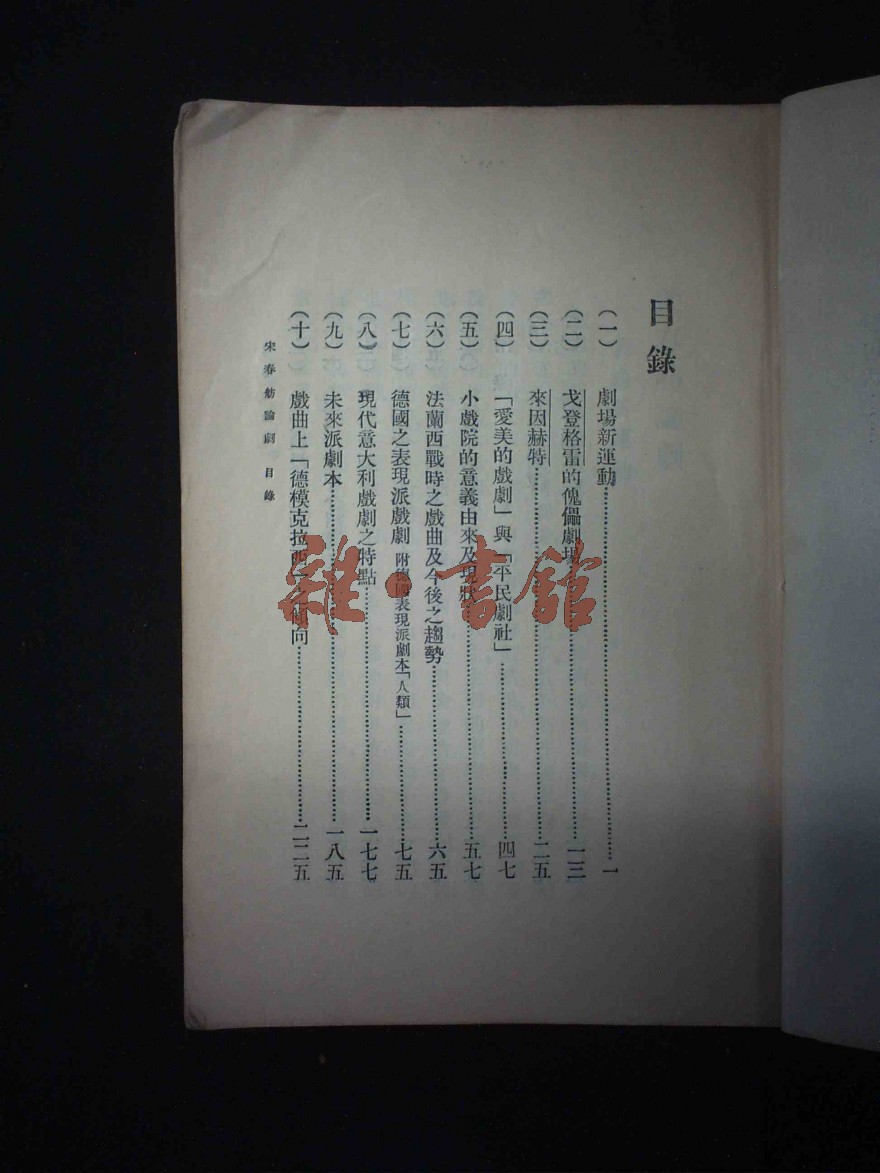 目錄
（一） 劇場新運動……一
（二） 戈登格雷的傀儡劇場……一三
（三） 來因赫特……二五
（四） 「愛美的戲劇」與「平民劇社」……四七
（五） 小戲院的意義由來及現狀……五七
（六） 法蘭西戰時之戲曲及今後之趨勢……六五
（七） 德國之表現派戲劇 附德國表現派劇本「人類」……七五
（八） 現代意大利戲劇之特點……一七七
（九） 未來派劇本……一八五
（十） 戲曲上「德模克拉西」之傾向……二二五
宋春舫論劇 目錄
雜·書館